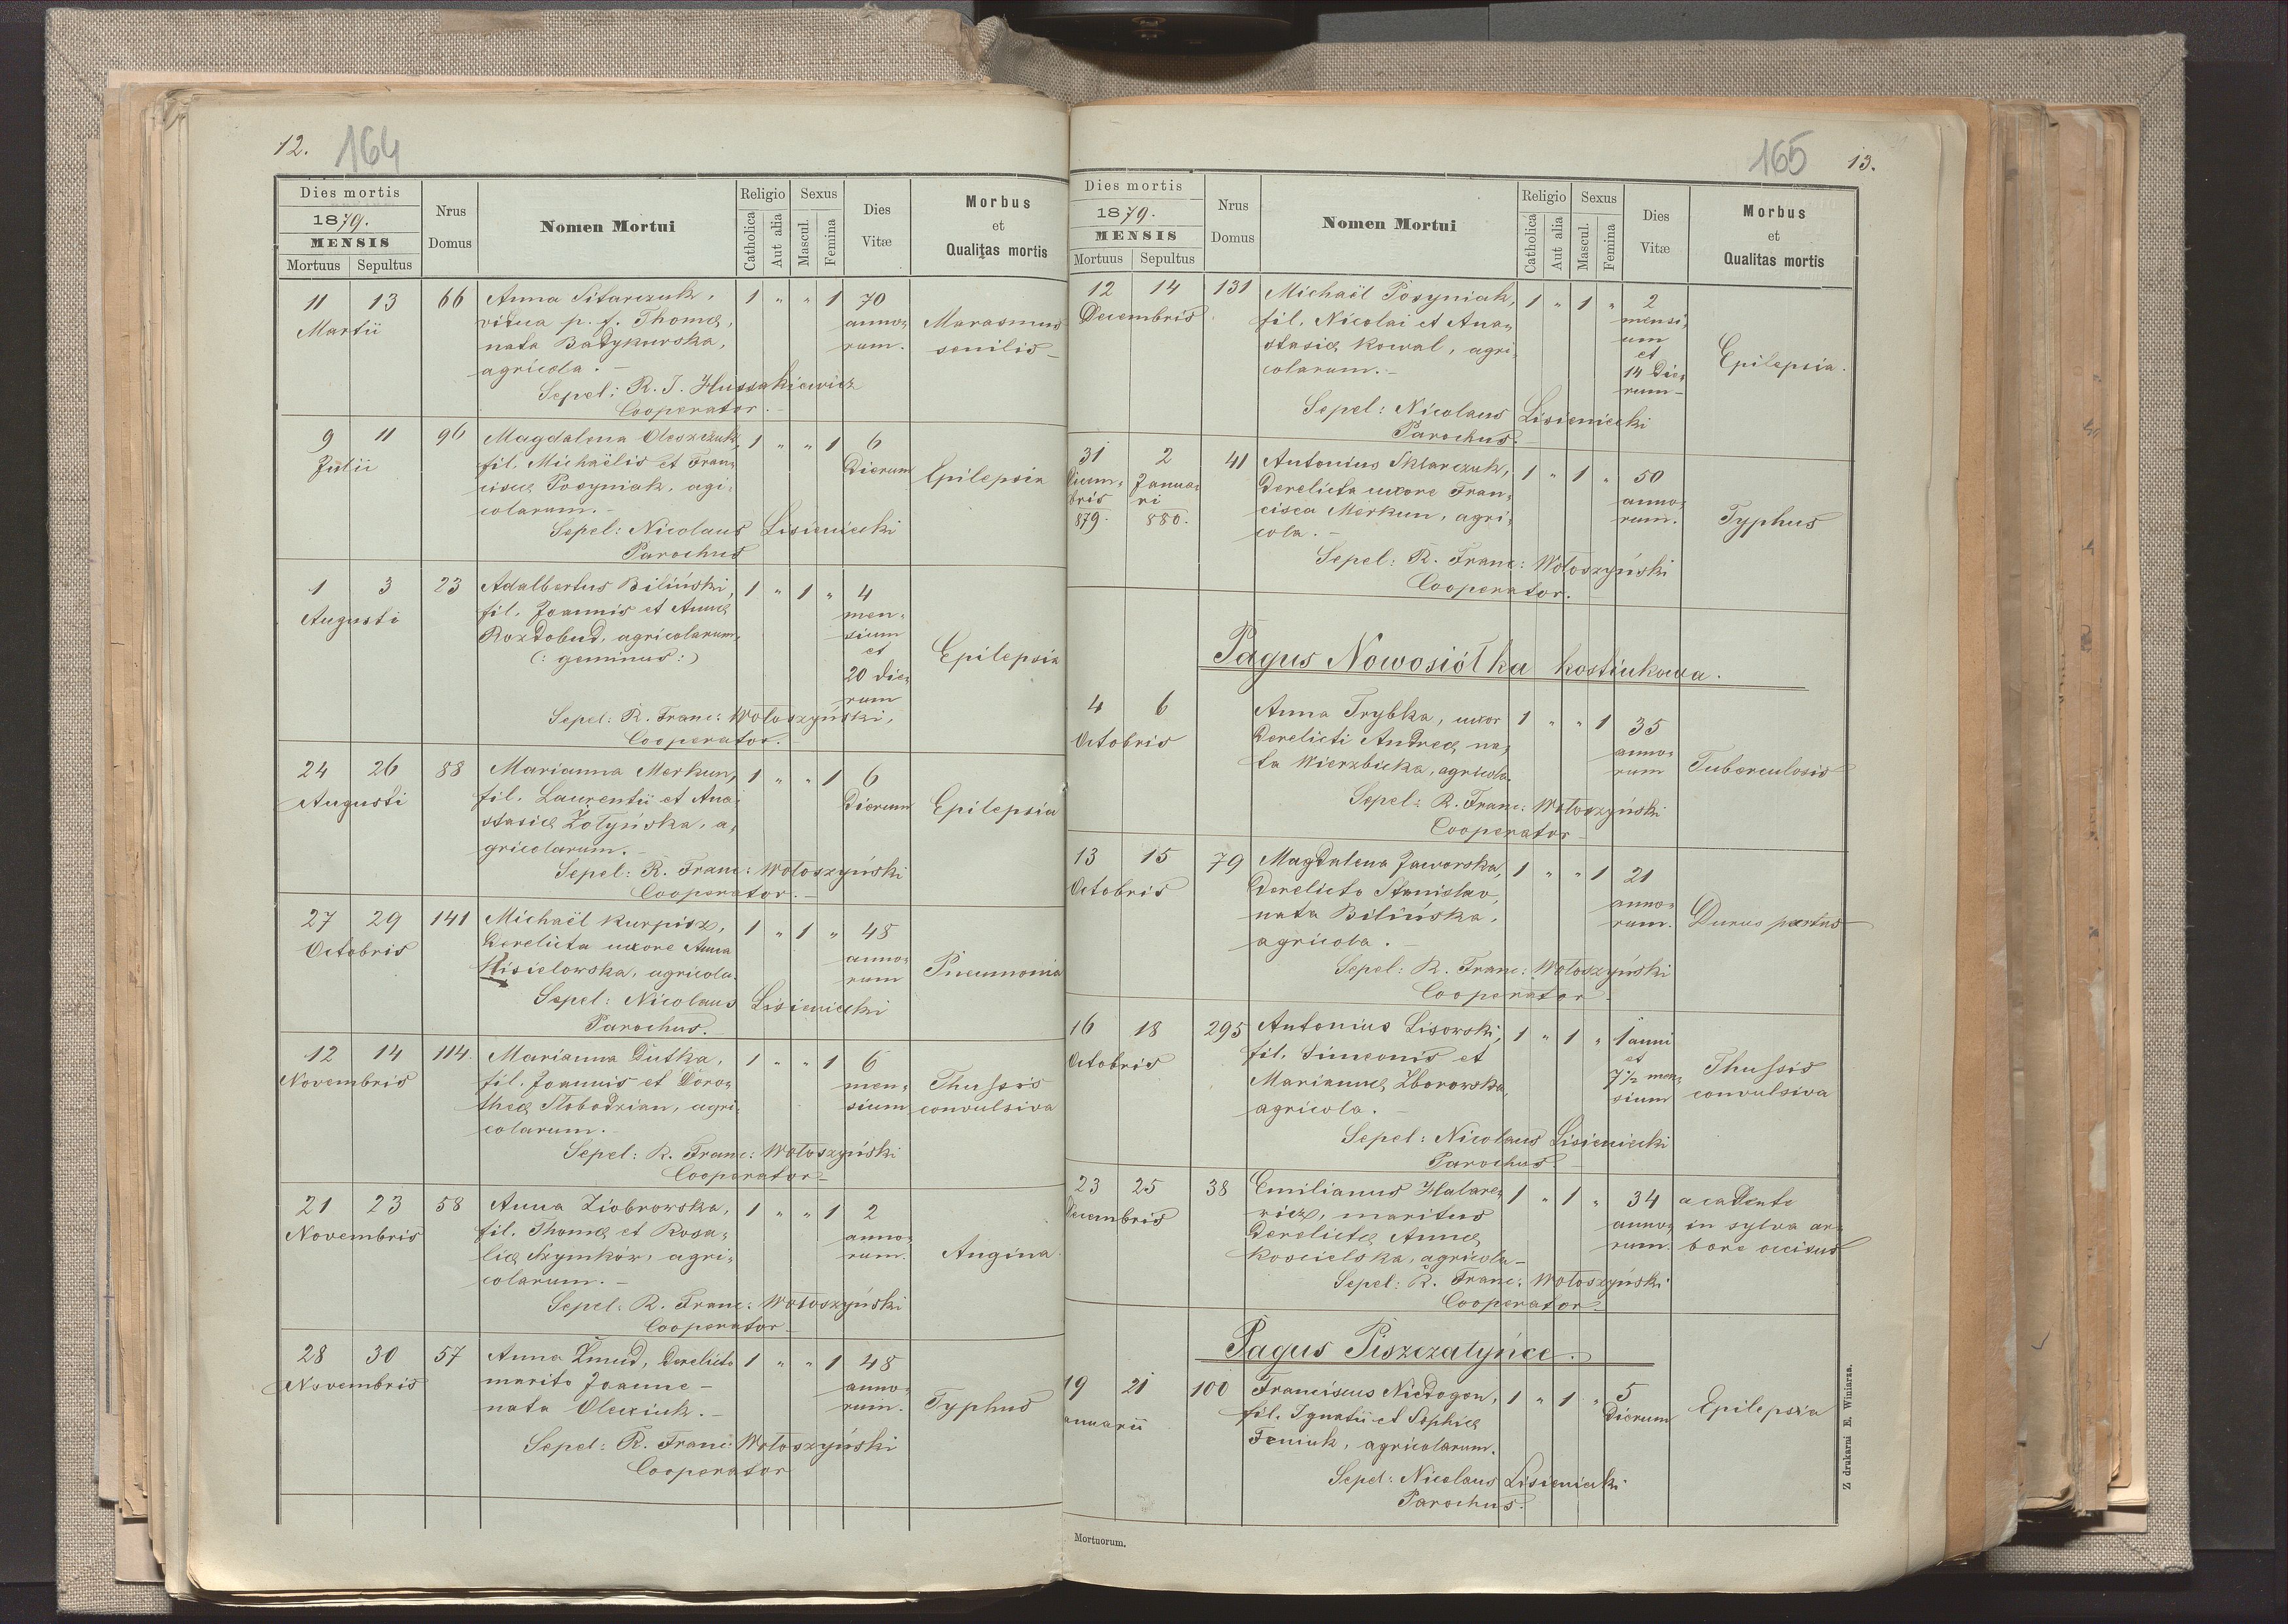 12. 164
Dies mortis
1879.
MENSIS
Mortuus Sepultus
Nrus Domus
Nomen Mortui
Religio
Catholica
Aut alia
Sexus
Mascul.
Femina
Dies Vitæ
Morbus
et
Qualitas mortis
11 13 66 Anna Sitarczuk, 1 " " 1 70
Martii vidua p. f. Thomæ, anno= Marasmus
nata Badykowska, rum. senilis
agricola.
Sepel: R. J. Hussakiewicz
Cooperator.
9 11 96 Magdalena Oleszczuk, 1 " " 1 6
Julii fil. Michaëlis et Fran= Dierum Epilepsia
ciscæ Posyniak, agi=
colarum.
Sepel: Nicolaus Lisieniecki
Parochus
1 3 23 Adalbertus Biliński, 1 " 1 " 4
Augusti fil. Joannis et Annæ men=
Rozdobud, agricolarum. sium
(: geminus :) et Epilepsia
20 die=
rum
Sepel: R. Franc: Wołoszyński,
Cooperator.
24 26 88 Marianna Merkun, 1 " " 1 6
Augusti fil. Laurentii et Ana= Dierum Epilepsia
stasiæ Żołyńska, a=
gricolarum.
Sepel: R. Franc: Wołoszyński
Cooperator.
27 29 141 Michaël Kurpisz, 1 " 1 " 48
Octobris Derelicta uxore Anna anno= Pneumonia
Kisielowska, agricola. rum
Sepel: Nicolaus Lisieniecki
Parochus.
12 14 114. Marianna Dutka, 1 " " 1 6
Novembris fil. Joannis et Doro= men= Thussis
theæ Słobodzian, agri= sium convulsiva
colarum.
Sepel: R. Franc: Wołoszyński
Cooperator
21 23 58 Anna Ziobrowska, 1 " " 1 2
Novembris fil. Thomæ et Rosa= anno=
liæ Szymków, agri= rum. Angina
colarum.
Sepel: R. Franc: Wołoszyński
Cooperator
28 30 57 Anna Żmud, Derelicto 1 " " 1 48
Novembris marito Joanne anno=
nata Olexiuk. rum. Typhus
Sepel: R. Franc: Wołoszyński
Cooperator
165 13.
Dies mortis
1879.
MENSIS
Mortuus Sepultus
Nrus Domus
Nomen Mortui
Religio
Catholica
Aut alia
Sexus
Mascul.
Femina
Dies Vitæ
Morbus
et
Qualitas mortis
12 14 131 Michaël Posyniak, 1 " 1 " 2
Decembris fil. Nicolai et Ana= mensi=
stasiæ Kowal, agri= um
colarum. et Epilepsia.
14 Die=
rum
Sepel: Nicolaus Lisieniecki
Parochus.
31 2 41 Antonius Sklarczuk, 1 " 1 " 50
Januari Derelicta uxore Fran= anno=
879. 880. cisca Merkun, agri= rum. Typhus
cola.
Sepel: R. Franc: Wołoszyński
Cooperator.
Pagus Nowosiółka kostiukowa.
4 6 Anna Trybka, uxor 1 " " 1 35
Octobris Derelicti Andreæ na= anno=
ta Wierzbicka, agricola. rum Tuberculosis
Sepel: R. Franc: Wołoszyński
Cooperator
13 15 79 Magdalena Jaworska, 1 " " 1 21
Octobris Derelicto Stanislao, anno=
nata Bilińska, rum. Durus partus
agricola.
Sepel: R. Franc: Wołoszyński
Cooperator
16 18 295 Antonius Lisowski, 1 " 1 " 1 anni
Octobris fil. Simeonis et et Thussis
Mariannæ Zborowska, 7 1/2 men= convulsiva
agricola. sium
Sepel: Nicolaus Lisieniecki
Parochus.
23 25 38 Emilianus Halare= 1 " 1 " 34 acadente
Decembris wicz, maritus anno= in sylva ar=
Derelictæ Annæ rum. bore occisus
Koscielska, agricola
Sepel: R. Franc: Wołoszyński
Cooperator
Pagus Piszczatyńce.
19 21 100 Franciscus Niedogon, 1 " 1 " 5
anuarii fil. Ignatii et Sophiæ Dierum Epilepsia
Feniuk, agricolarum.
Sepel: Nicolaus Lisieniecki
Parochus.
Mortuorum.
Z drukarni E. Winiarza.